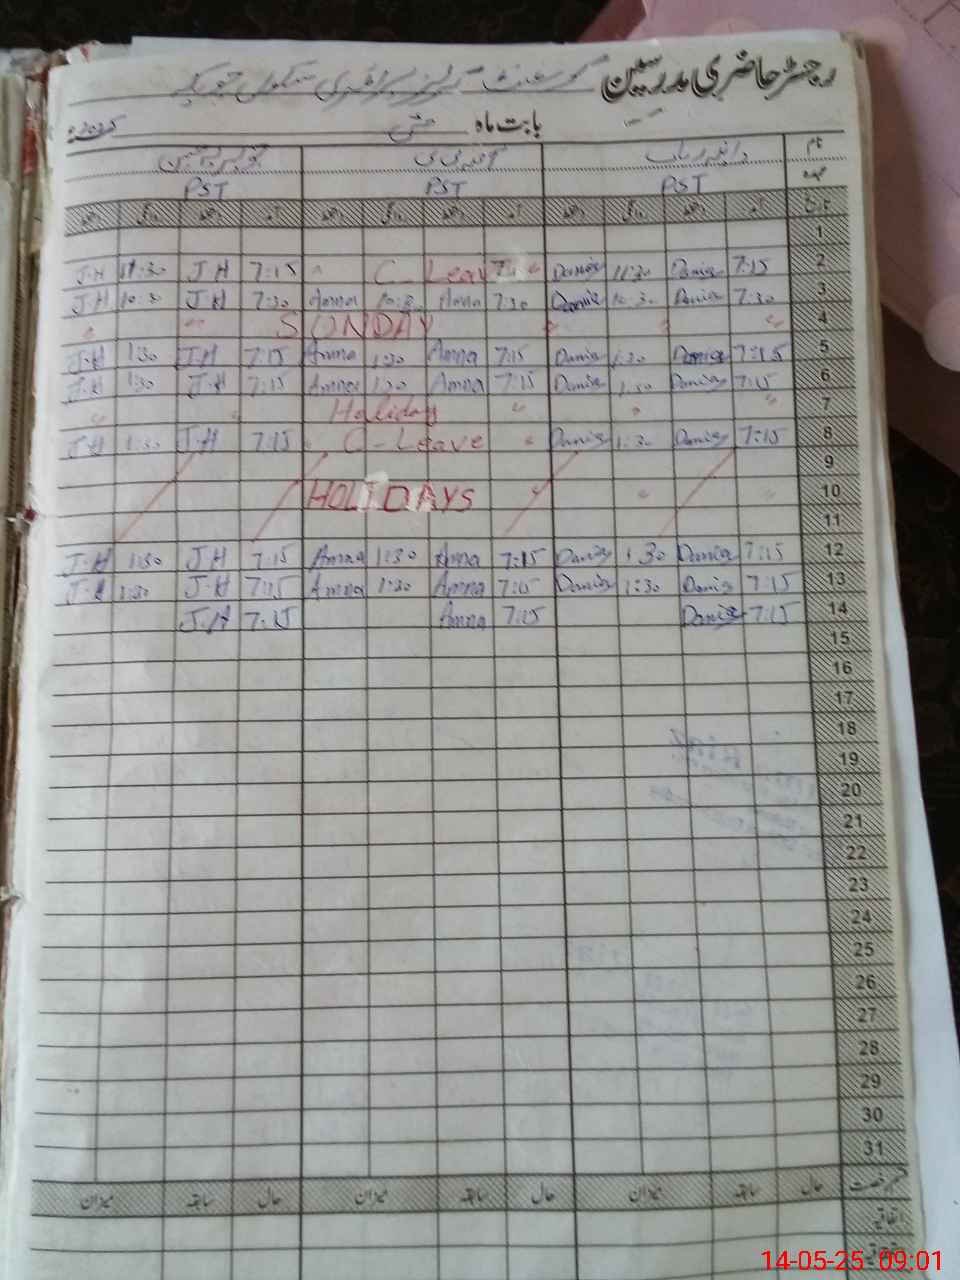 رجسٹر حاضری مدرسین گورنمنٹ گرلز پرائمری سکول
بابت ماہ مئی 2025ء
نام
عہدہ PST PST PST
تاریخ آمد دستخط روانگی دستخط آمد دستخط روانگی دستخط آمد دستخط روانگی دستخط
1
J.H 11:30 J.H 7:15 " C-Leave " Dania 11:30 Dania 7:15 2
J.H 10:30 J.H 7:30 Amna 10:30 Amna 7:30 Dania 10:30 Dania 7:30 3
" " SUNDAY " " " 4
J.H 1:30 J.H 7:15 Amna 1:30 Amna 7:15 Dania 1:30 Dania 7:15 5
J.H 1:30 J.H 7:15 Amna 1:30 Amna 7:15 Dania 1:30 Dania 7:15 6
" " Holiday " " " 7
J.H 1:30 J.H 7:15 " C-Leave " Dania 1:30 Dania 7:15 8
9
HOLIDAYS " " " 10
11
J.H 1:30 J.H 7:15 Amna 1:30 Amna 7:15 Dania 1:30 Dania 7:15 12
J.H 1:30 J.H 7:15 Amna 1:30 Amna 7:15 Dania 1:30 Dania 7:15 13
J.H 7:15 Amna 7:15 Dania 7:15 14
15
16
17
18
19
20
21
22
23
24
25
26
27
28
29
30
31
قسم رخصت حال سابقہ میزان حال سابقہ میزان حال سابقہ میزان
اتفاقیہ
14-05-25 09:01